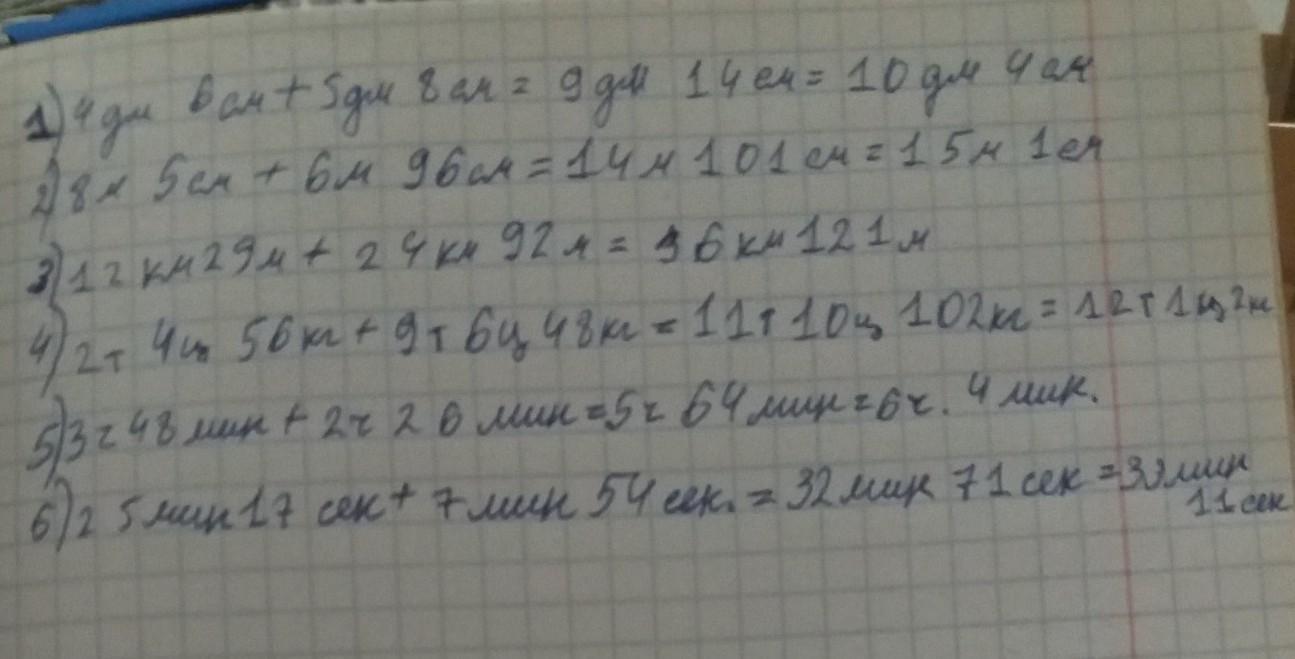 1) 4 дм 6 см + 5 дм 8 см = 9 дм 14 см = 10 дм 4 см
2) 8 м 5 см + 6 м 96 см = 14 м 101 см = 15 м 1 см
3) 12 км 29 м + 24 км 92 м = 36 км 121 м
4) 2 т 4 ц 56 кг + 9 т 6 ц 48 кг = 11 т 10 ц 102 кг = 12 т 1 ц 2 кг
5) 3 ч 48 мин + 2 ч 26 мин = 5 ч 64 мин = 6 ч. 4 мин.
6) 25 мин 17 сек + 7 мин 54 сек. = 32 мин 71 сек = 33 мин
11 сек